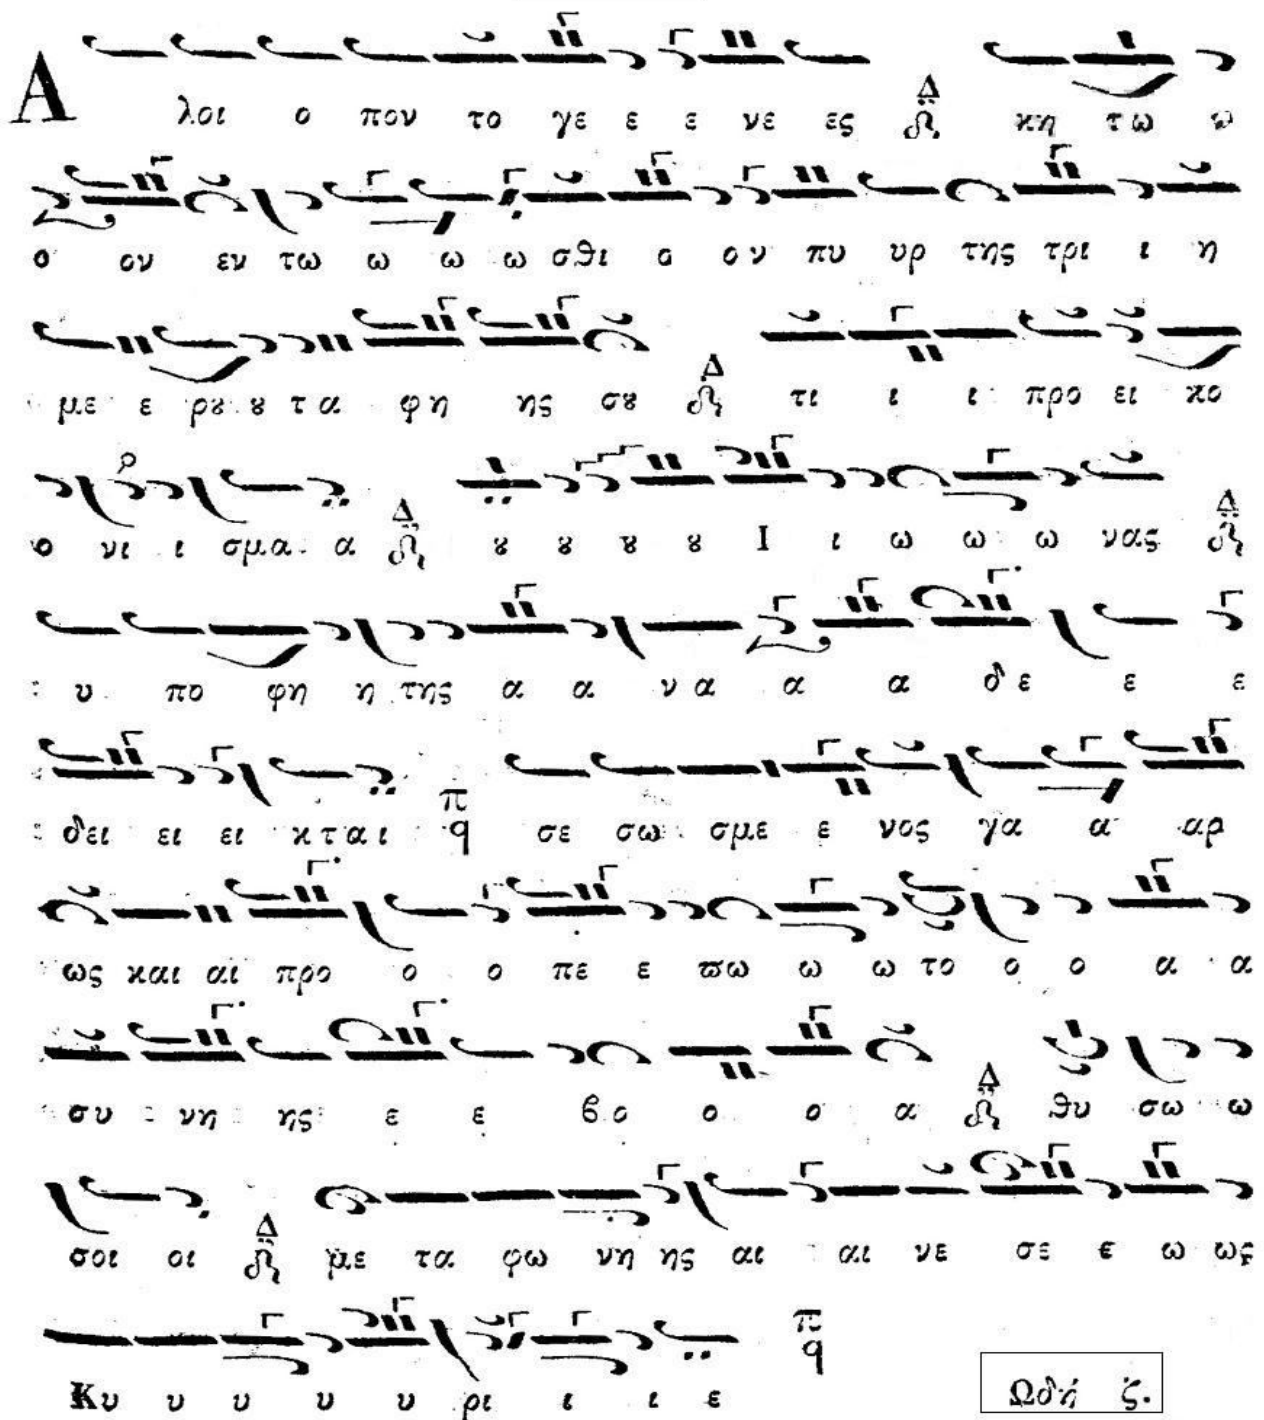 Α λοι ο πον το γε ε ε νε ες Δ κη τω ω
ο ον εν τω ω ω ω σθι ο ον πυ υρ της τρι ι η
με ε ρȣ ȣ τα φη ης σȣ Δ τι ι ι προ ει κο
ο νι ι σμα α Δ ȣ ȣ ȣ ȣ Ι ι ω ω ω νας Δ
υ πο φη η της α α να α α δε ε ε
δει ει ει κται π q σε σω σμε ε νος γα α αρ
ως και αι προ ο ο πε ε ϖω ω ω το ο ο α α
συ νη ης ε ε βο ο ο α Δ θυ σω ω
σοι οι Δ με τα φω νη ης αι αι νε σε ε ω ως
Κυ υ υ υ υ ρι ι ι ε π q
Ωδή ζ.